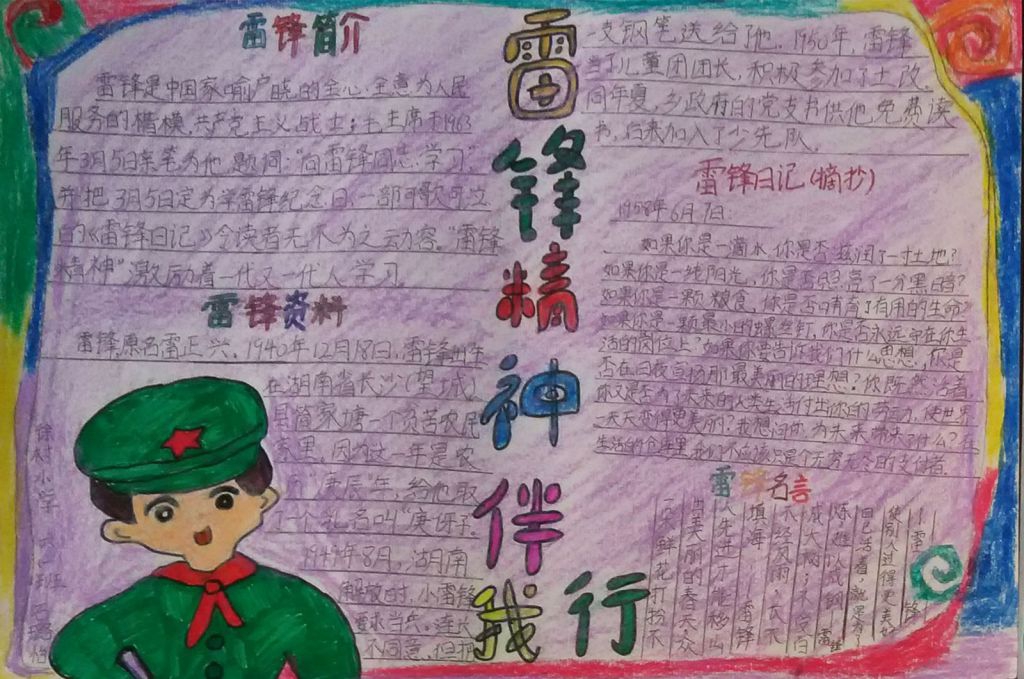 雷锋精神伴我行
雷锋简介
雷锋是中国家喻户晓的全心全意为人民
服务的楷模,共产党主义战士;毛主席于1963
年3月5日亲笔为他题词:“向雷锋同志学习”
并把3月5日定为学雷锋纪念日,一部可歌可泣
的《雷锋日记》令读者无不为之动容。“雷锋
精神”激励着一代又一代人学习
雷锋资料
雷锋,原名雷正兴,1940年12月18日,雷锋出生
在湖南省长沙(望城)
县简家塘一个贫苦农民
家里,因为这一年是农
庚辰年,给他取
了一个乳名叫“庚伢子。
1949年8月,湖南
解放时,小雷锋
要求当兵。连长
不同意,但把
一支钢笔送给了他。1950年,雷锋
当了儿童团团长,积极参加了土改。
同年夏,乡政府的党支书供他免费读
书,后来加入了少先队。
雷锋日记(摘抄)
1958年6月7日:
如果你是一滴水,你是否滋润了一寸土地?
如果你是一线阳光,你是否照亮了一分黑暗?
如果你是一颗粮食,你是否哺育了有用的生命”
如果你是一颗最小的螺丝钉,你是否永远守在你生
活的岗位上?如果你要告诉我们什么思想,你是
否在日夜宣扬那最美丽的理想?你既然活着
你又是否为了未来的人类生活付出你的劳动,使世界
一天天变得更美丽?我想问你,为未来带来了什么?在
生活的仓库里,我们不应该只是个无穷无尽的支付者
雷锋名言
自己活着,就是为了
使别人过得更美好
雷锋
炼进队成钢
雷锋
不经风雨,长不
成大树;不受百
人先进才能移山
填海
雷锋
一朵鲜花打扮不
出美丽的春天,众
徐村小学